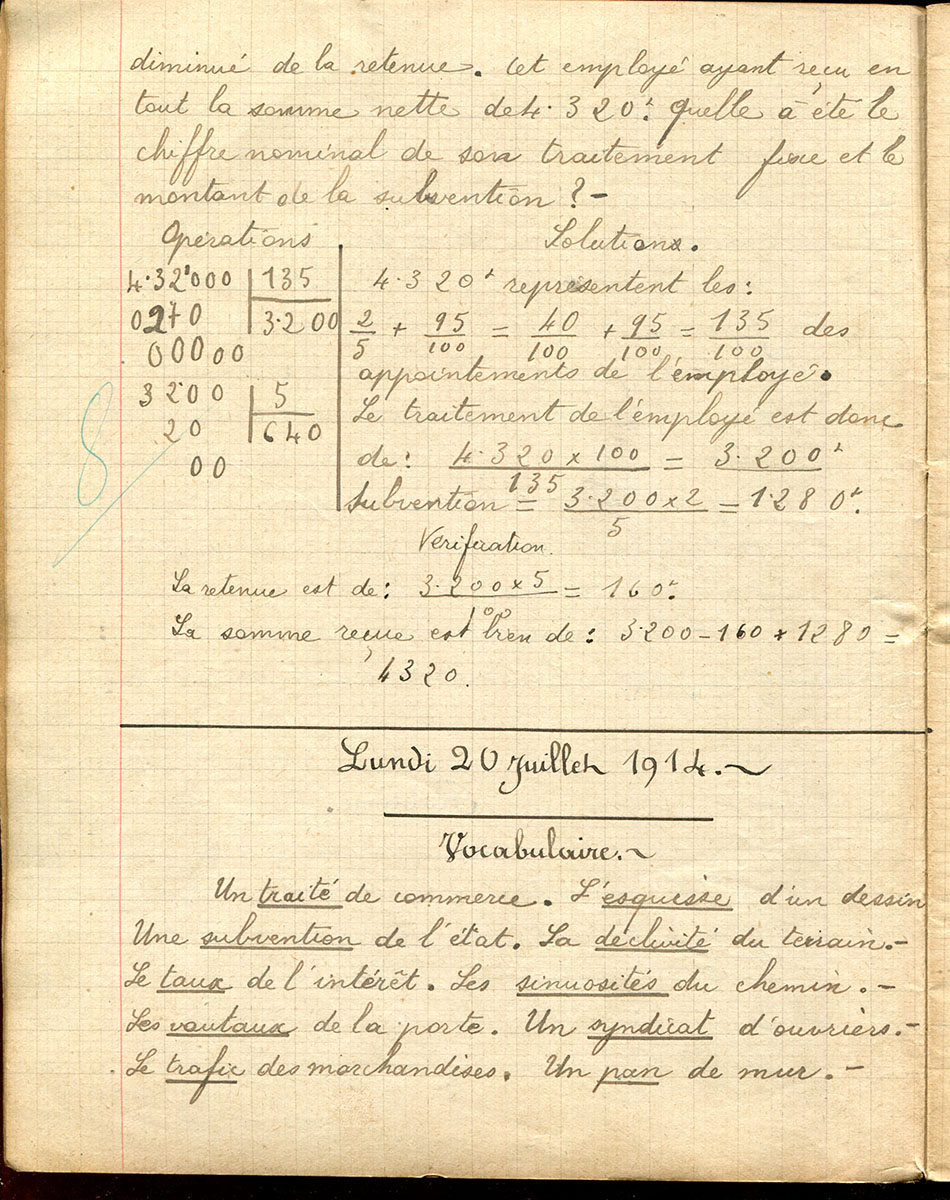 diminué de la retenue. Cet employé ayant reçu en
tout la somme nette de 4.320f. Quelle à été le
chiffre nominal de son traitement fixe et le
montant de la subvention ? –
Opérations
Solutions.
4.32'000 | 135
0270 | 3.200
00000
3200 | 5
20 | 640
00
8
4.320f représentent les :
2/5 + 95/100 = 40/100 + 95/100 = 135/100 des
appointements de l'employé.
Le traitement de l'employé est donc
de : 4.320 x 100 / 135 = 3.200f
subvention = 3.200 x 2 / 5 = 1.280f.
Vérification.
La retenue est de : 3.200 x 5 / 100 = 160f.
La somme reçue est bien de : 3.200 – 160 + 1280 =
4320.
Lundi 20 Juillet 1914. ~
Vocabulaire. ~
Un traité de commerce. L'esquisse d'un dessin
Une subvention de l'état. La déclivité du terrain. –
Le taux de l'intérêt. Les sinuosités du chemin. –
Les vantaux de la porte. Un syndicat d'ouvriers. –
Le trafic des marchandises. Un pan de mur. –